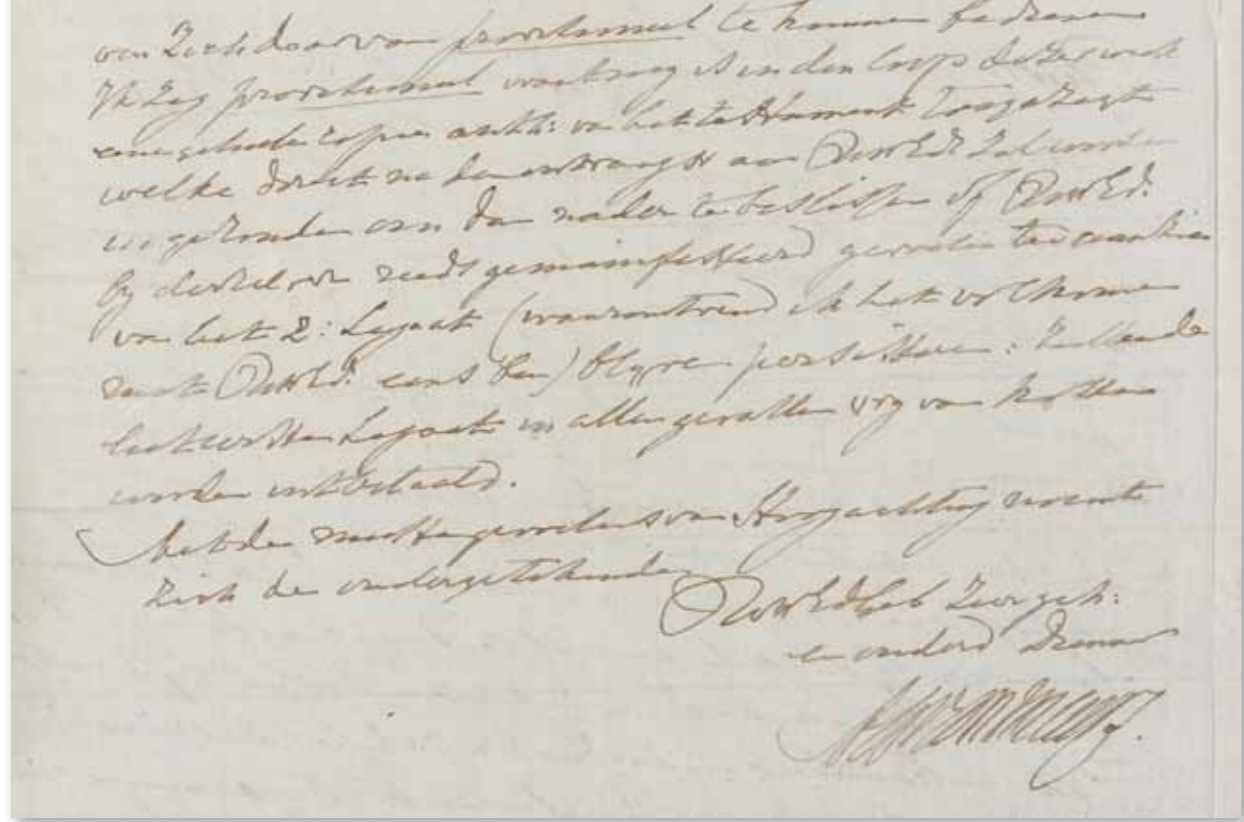 van zich daar van provisioneel te kunnen bedienen
Ik zeg provisioneel want mij is in den loop dezer week
eene geheele copie auth: van het testament toegezegt
welke direct na de ontvangst aan UwEd: zal worden
gezonden om dan nader te beslissen of UwEd:
bij derzelver reeds gemanifesteerd gevoelen ten
van het 2: Legaat (waaromtrend ik het volkomen
met UwEd: eens ben) blijve persisteren: zullende
het eerste Legaat in allen gevallen vrij van kosten
worden uitbetaald.
Met de meeste gevoelens van Hoogachting noemt
zich de ondergetekende
UwEdGeb zeer geh:
en onderd Dienaar